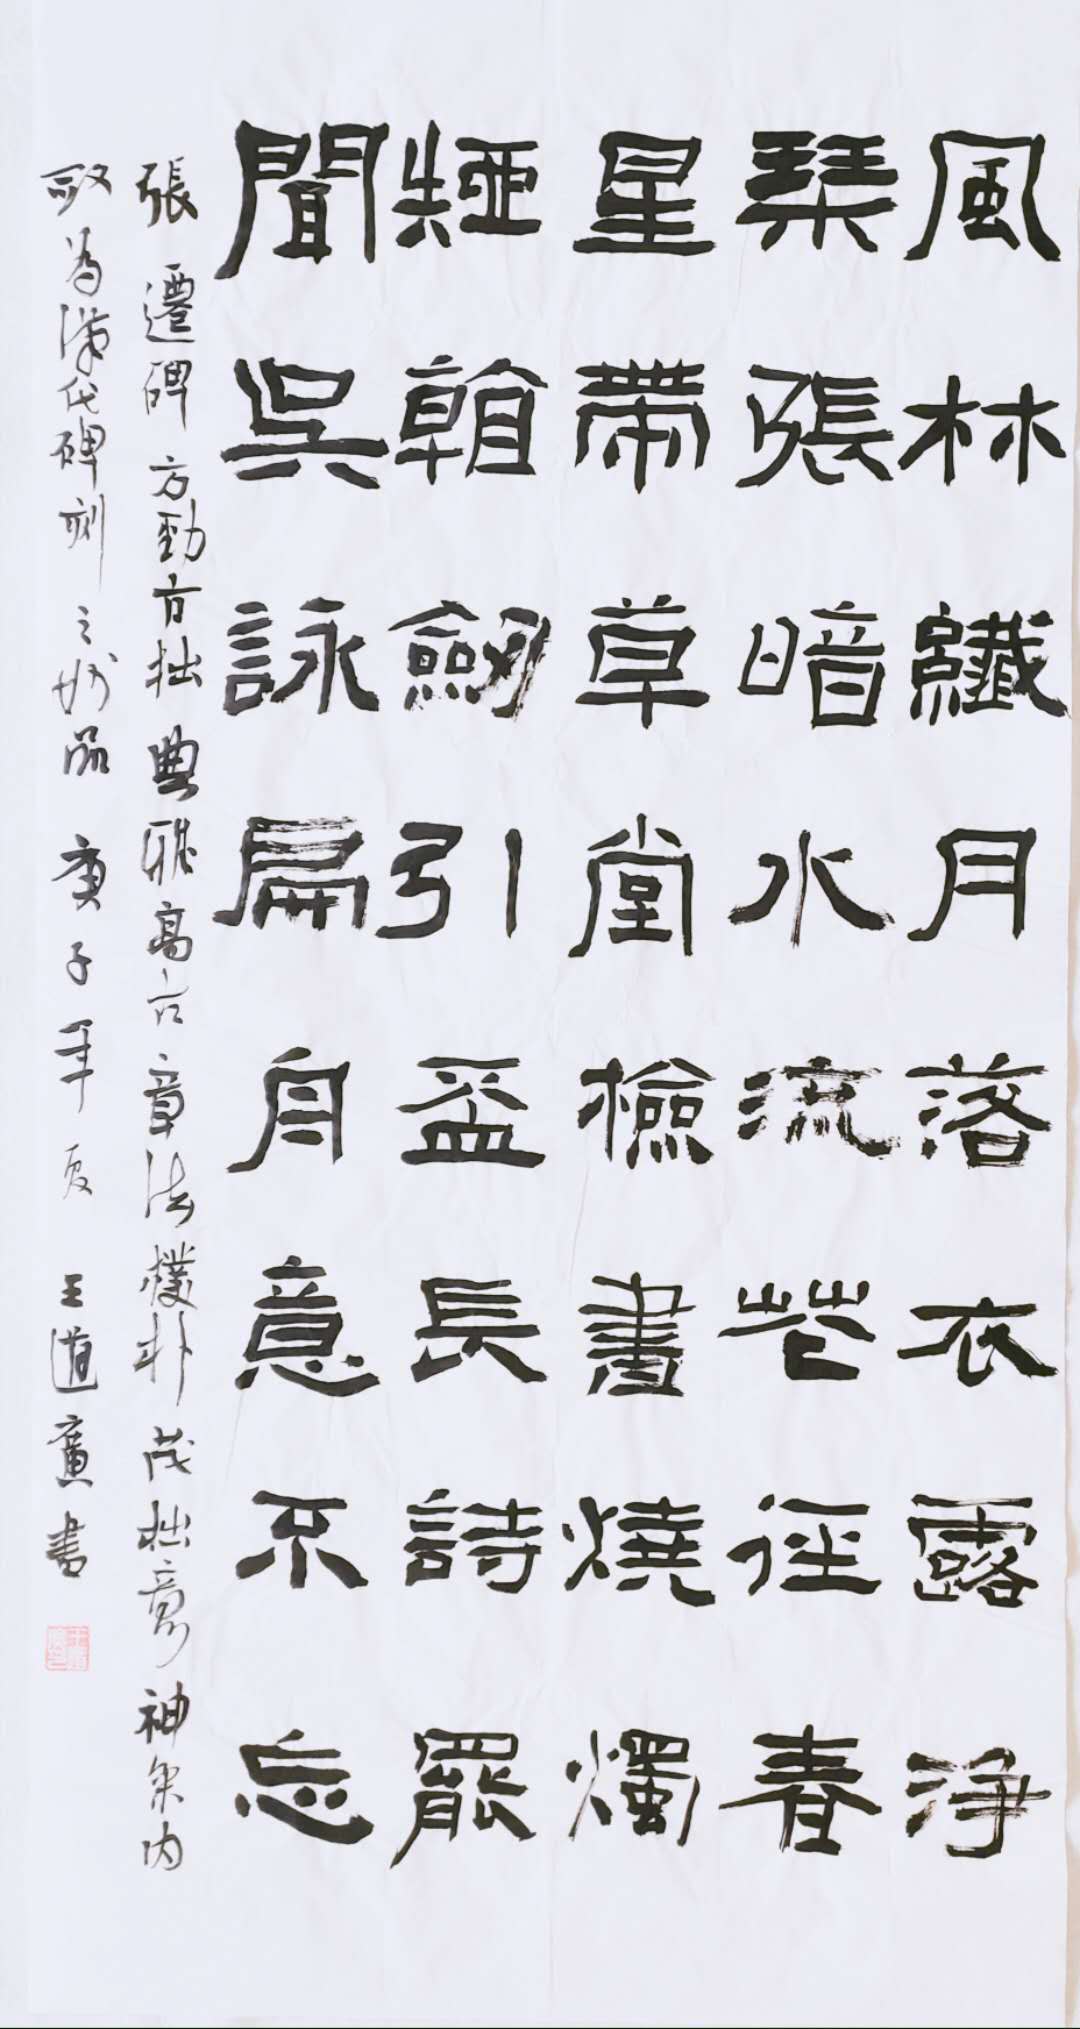 風林纖月落衣露淨
琴張暗水流花徑春
星帶草堂檢書燒燭
短看劍引盃長詩罷
聞吳詠扁舟意不忘
張遷碑方勁古拙典雅高古章法樸朴茂拙意神氣内
斂為漢代碑刻之妙品庚子年夏王道廣書